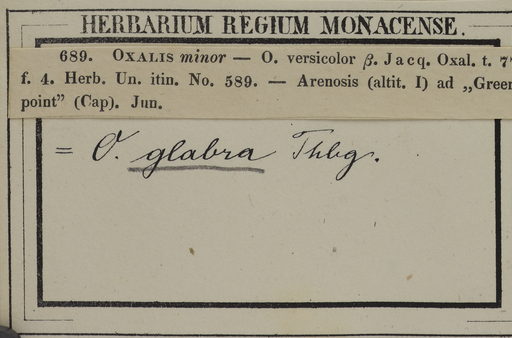 HERBARIUM REGIUM MONACENSE.
689. OXALIS minor — O. versicolor β. Jacq. Oxal. t.
f. 4. Herb. Un. itin. No. 589. — Arenosis (altit. I) ad „Green
point” (Cap). Jun.
= O. glabra Thbg.